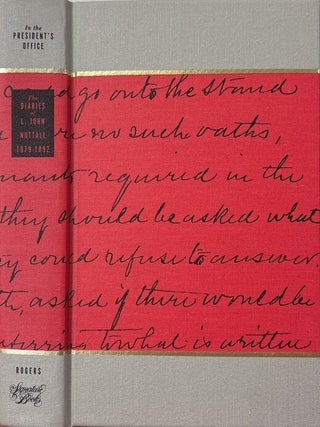 In the
PRESIDENT'S
OFFICE
The
DIARIES
of
L. JOHN
NUTTALL
1879-1892
ROGERS
Signature
Books
go onto the stand
no such oaths,
required in the
they should be asked what
could refuse to answer.
asked if there would be
to what is written